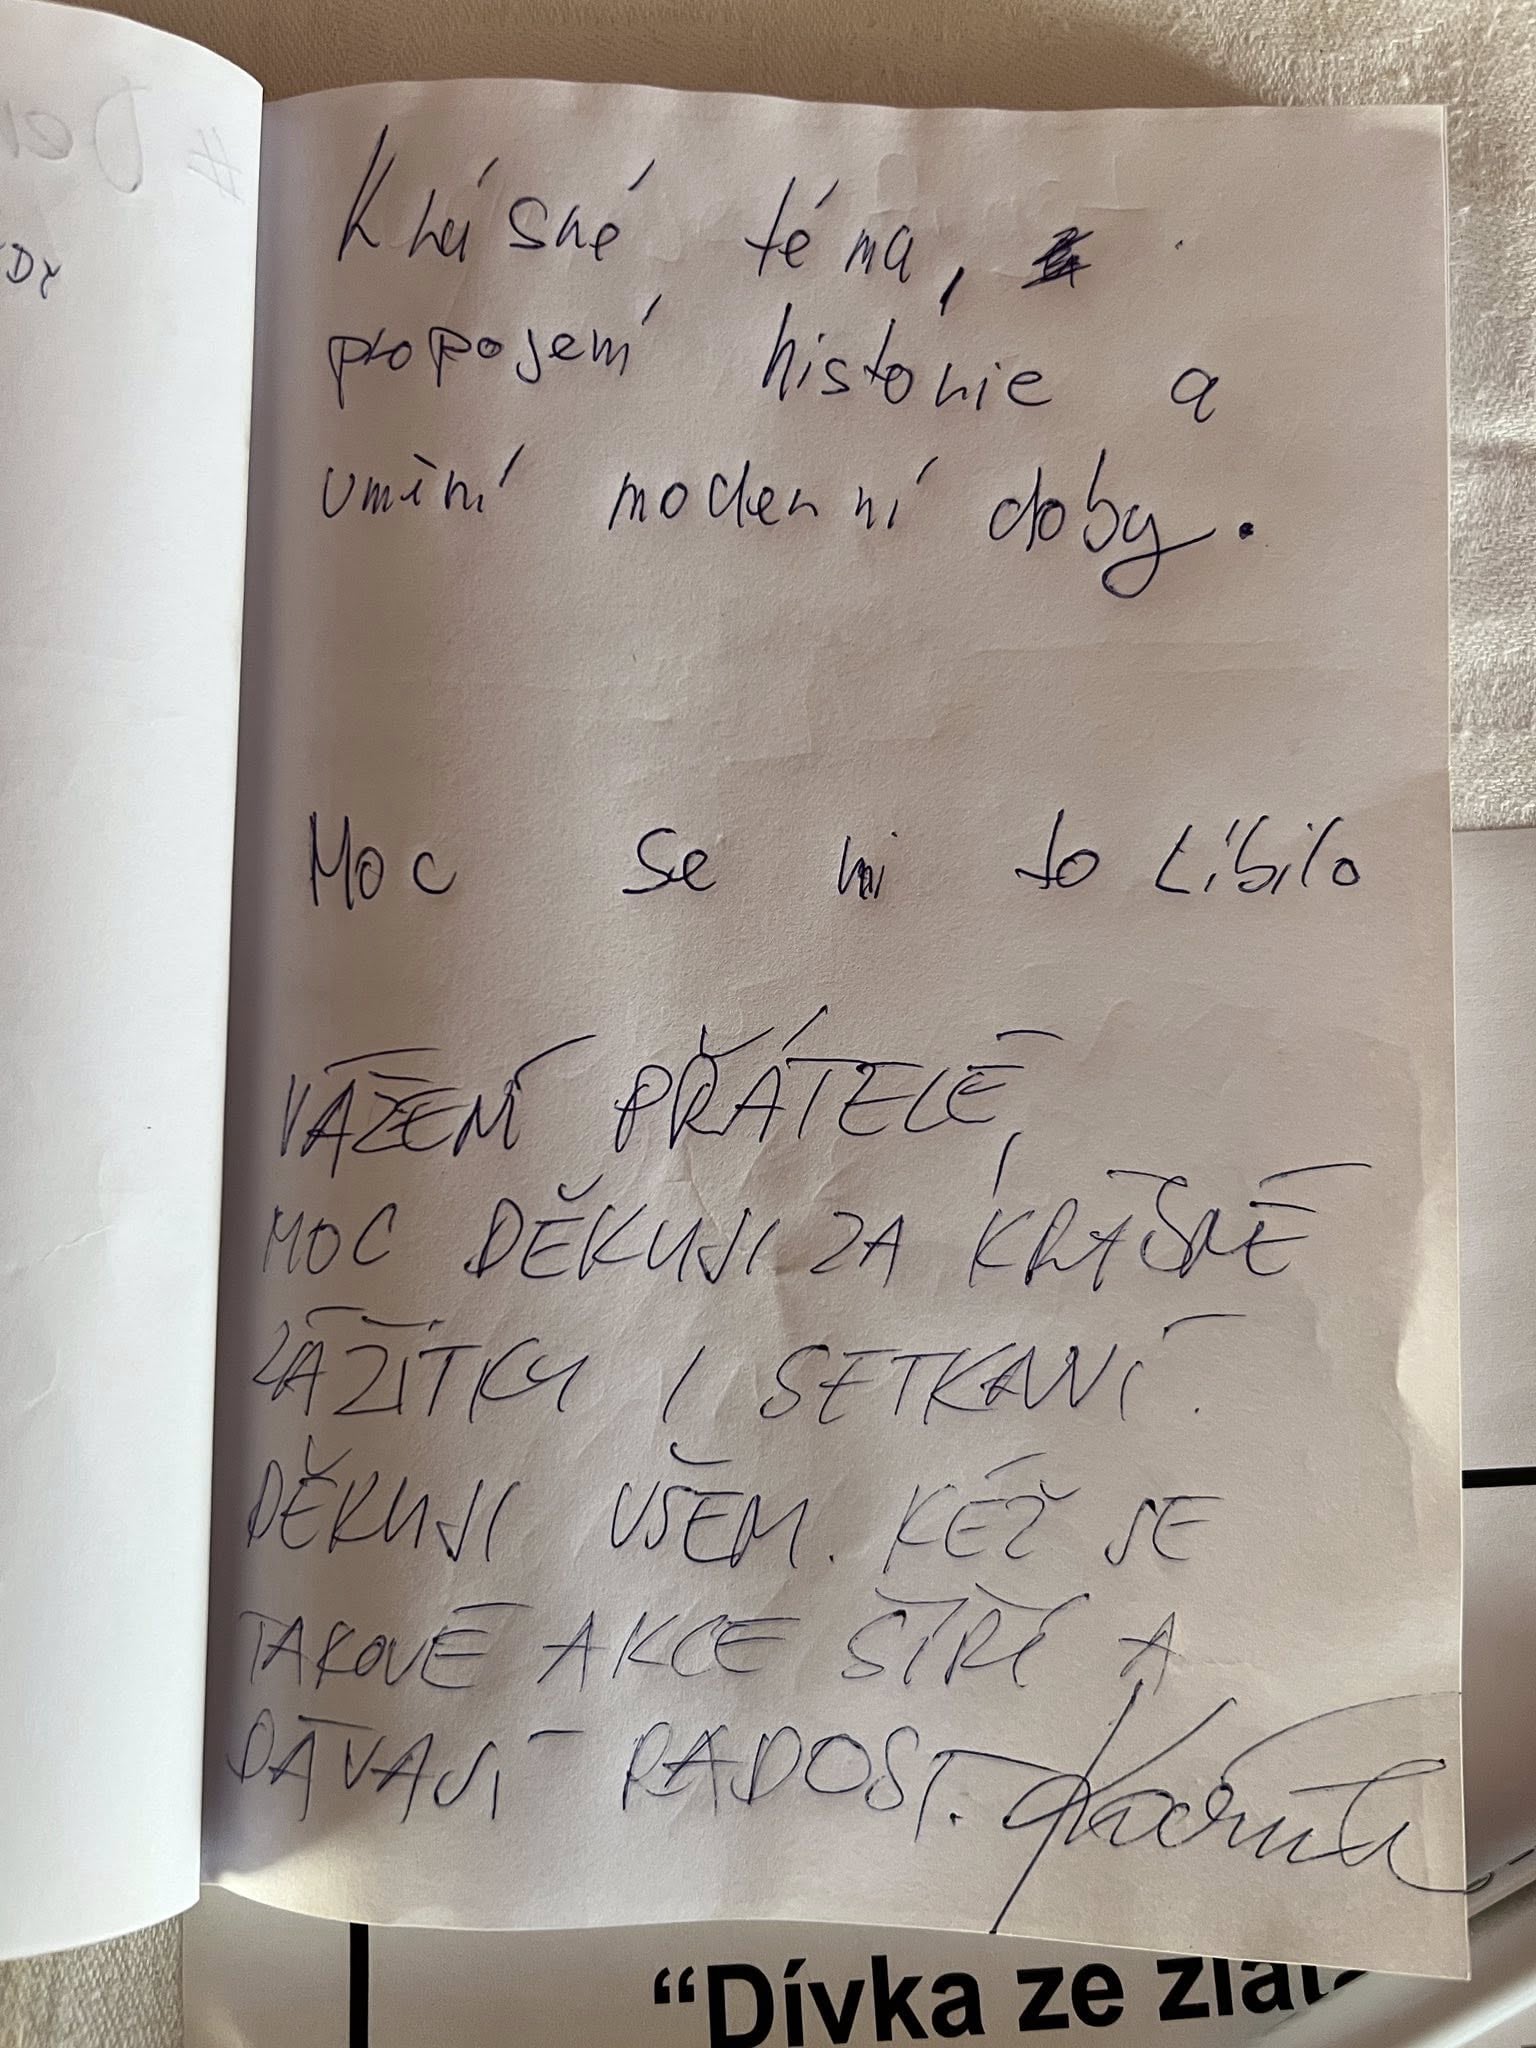 Krásné téma,
propojení histórie a
umění moderní doby.
Moc se mi to líbilo
VÁŽENÍ PŘÁTELÉ,
MOC DĚKUJI ZA KRÁSNÉ
ZÁŽITKY I SETKÁNÍ.
DĚKUJI VŠEM. KÉŽ SE
TAKOVÉ AKCE ŠÍŘÍ A
DÁVAJÍ RADOST.
“Dívka ze zlat